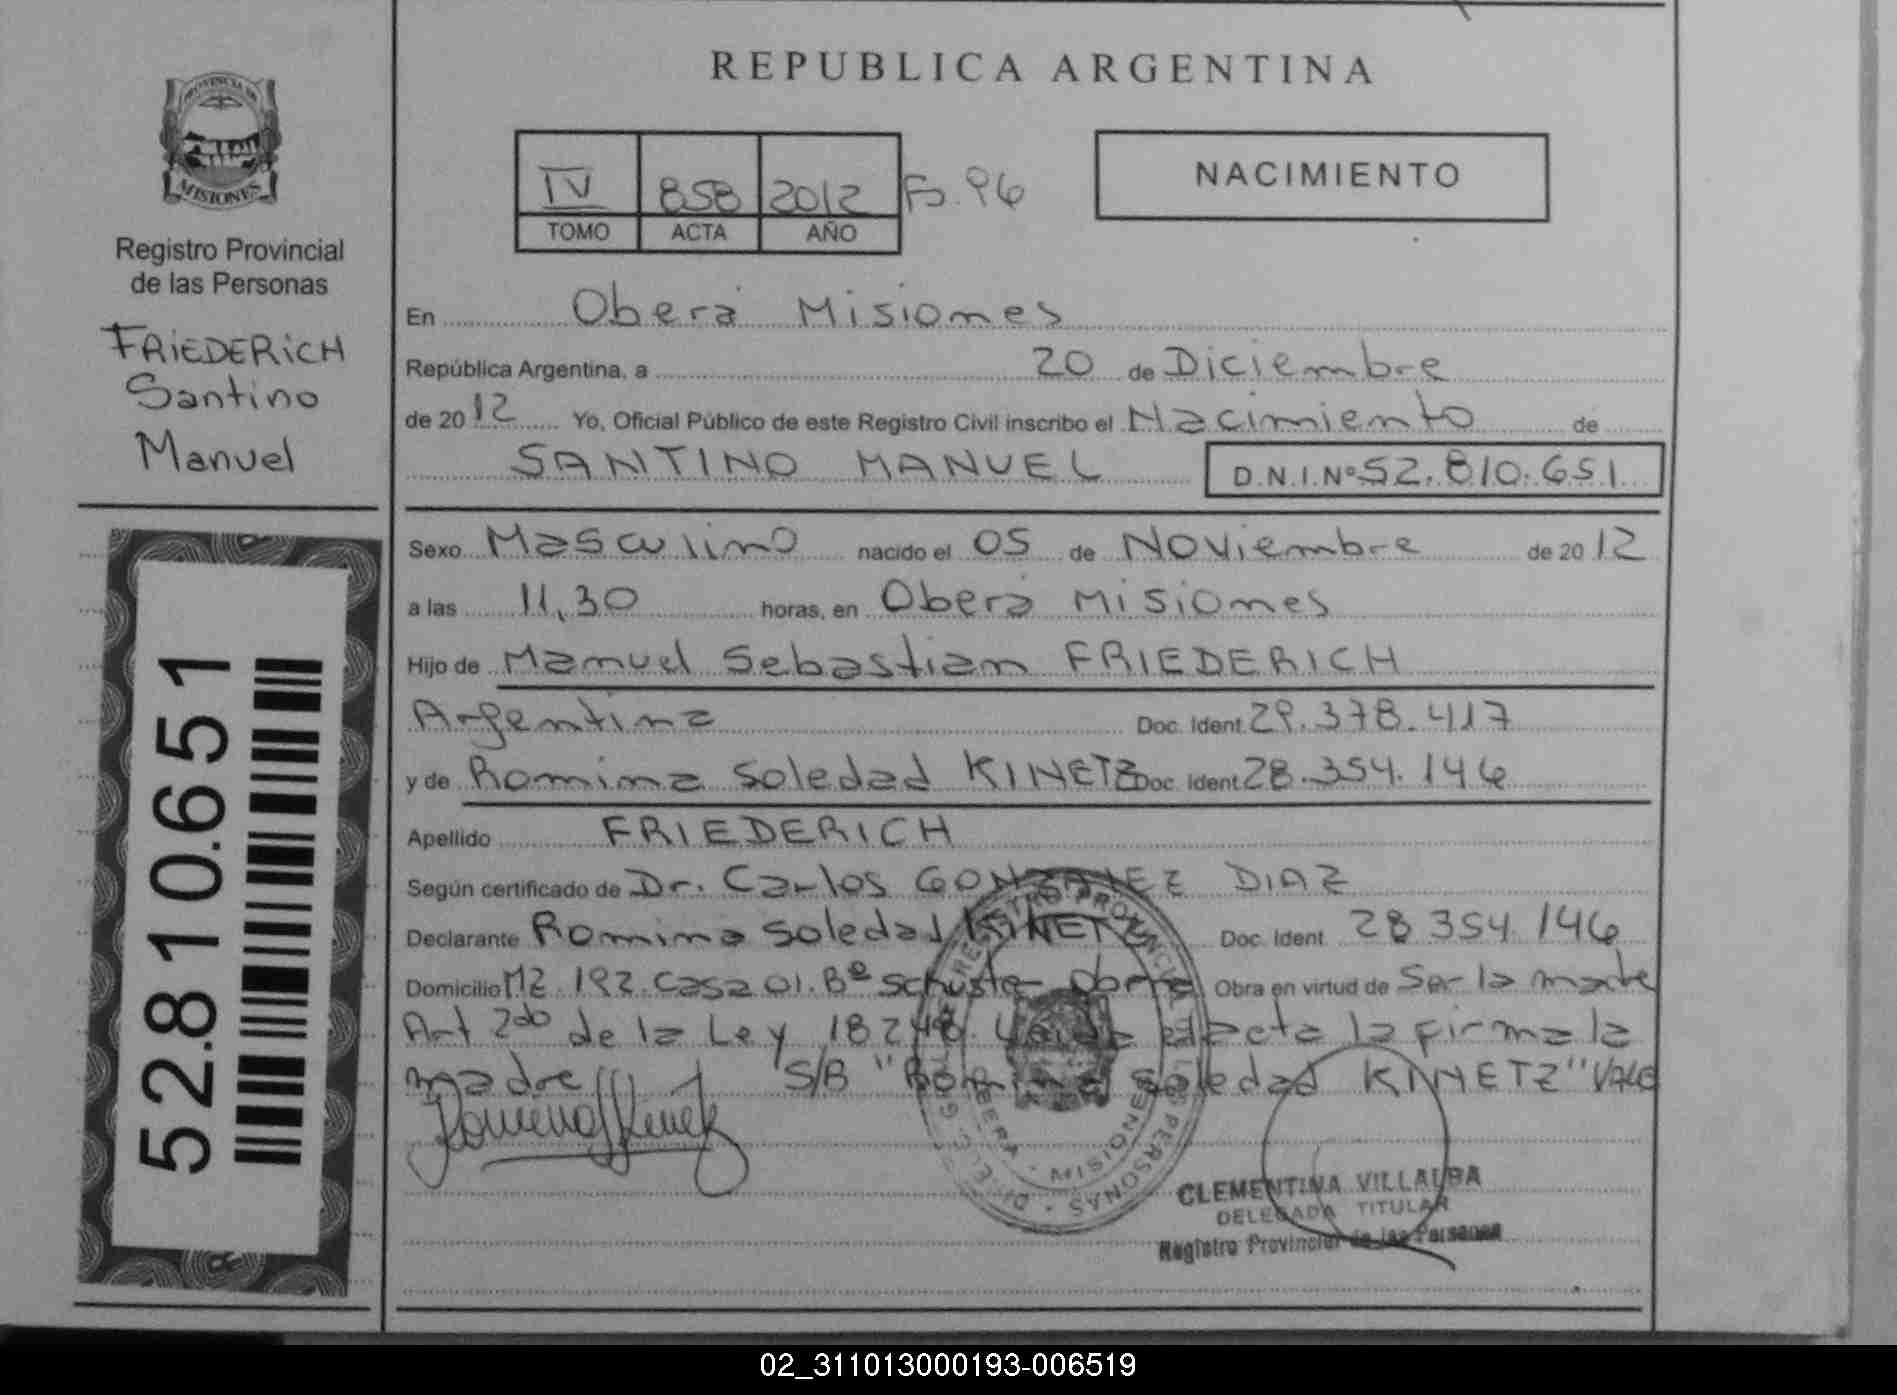 REPUBLICA ARGENTINA
PROVINCIA DE
MISIONES
Registro Provincial
de las Personas
FRIEDERICH
Santino
Manuel
52.810.651
IV 858 2012 Fo. 96
TOMO ACTA AÑO
NACIMIENTO
En Oberá Misiones
República Argentina, a 20 de Diciembre
de 2012 Yo, Oficial Público de este Registro Civil inscribo el Nacimiento de
SANTINO MANUEL D.N.I.Nº 52.810.651
Sexo Masculino nacido el 05 de Noviembre de 2012
a las 11,30 horas, en Oberá Misiones
Hijo de Manuel Sebastian FRIEDERICH
Argentina Doc. Ident. 29.378.417
y de Romina Soledad KINETZ Doc. Ident. 28.354.146
Apellido FRIEDERICH
Según certificado de Dr. Carlos GONZALEZ DIAZ
Declarante Romina Soledad KINETZ Doc. Ident. 28 354.146
Domicilio MZ 192. Casa 01. Bº Schuster Obera Obra en virtud de Ser la madre
Art 2do de la Ley 18248. Leida el acta la firma la
madre S/B "Romina Soledad KINETZ" VALE
REGISTRO PROVINCIAL DE LAS PERSONAS
OBERA - MISIONES
CLEMENTINA VILLALBA
DELEGADA TITULAR
Registro Provincial de las Personas
02_311013000193-006519